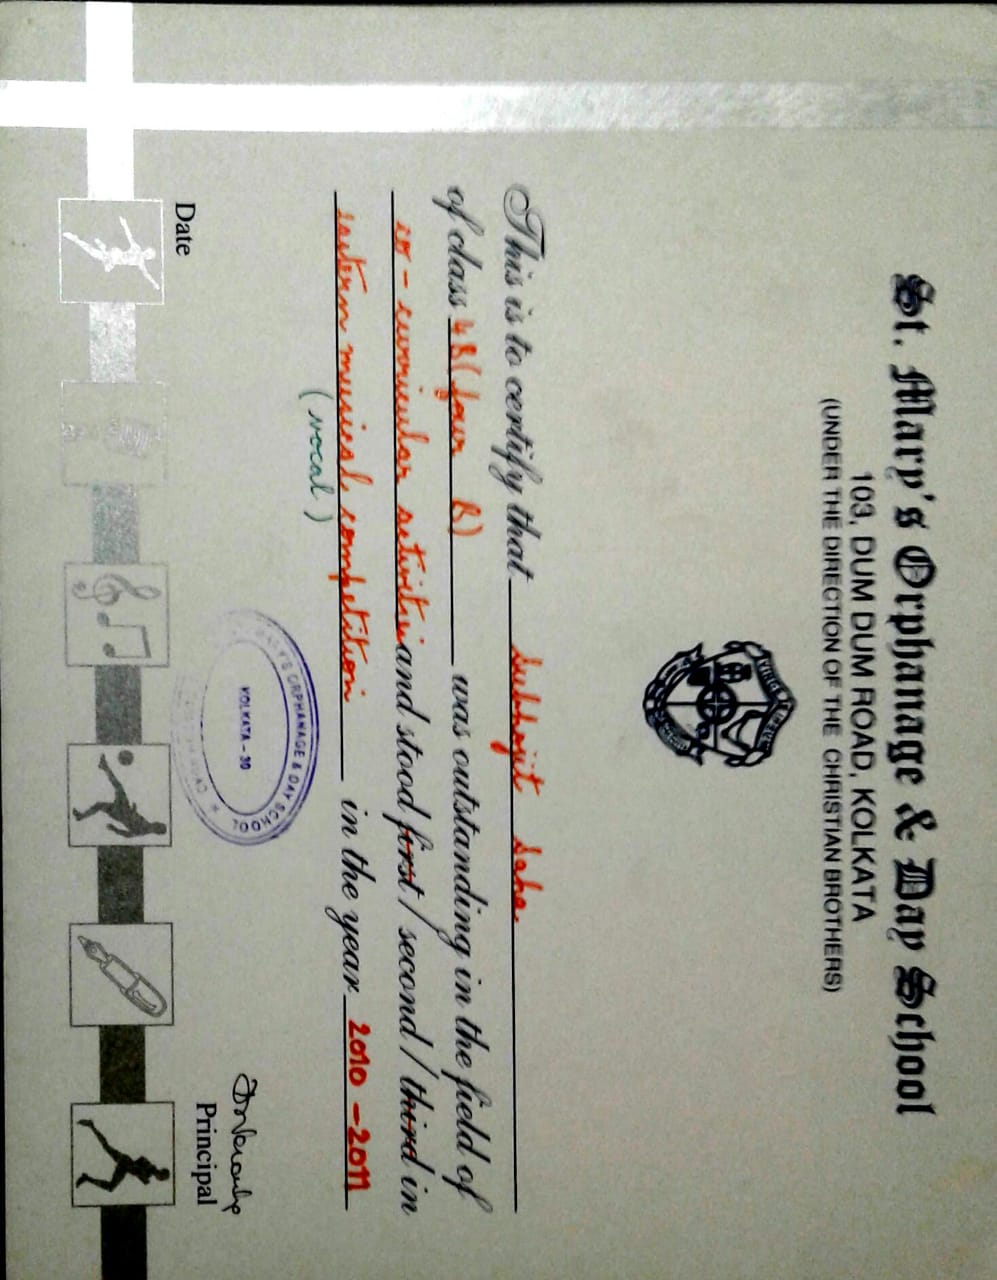 St. Mary's Orphanage & Day School
103, DUM DUM ROAD, KOLKATA
(UNDER THE DIRECTION OF THE CHRISTIAN BROTHERS)
This is to certify that Subhojit Saha
of class 4B (four B) was outstanding in the field of
co-curricular activities and stood first / second / third in
eastern musical competition in the year 2010 - 2011
(vocal)
MARY'S ORPHANAGE & DAY SCHOOL
KOLKATA - 30
Date
Principal